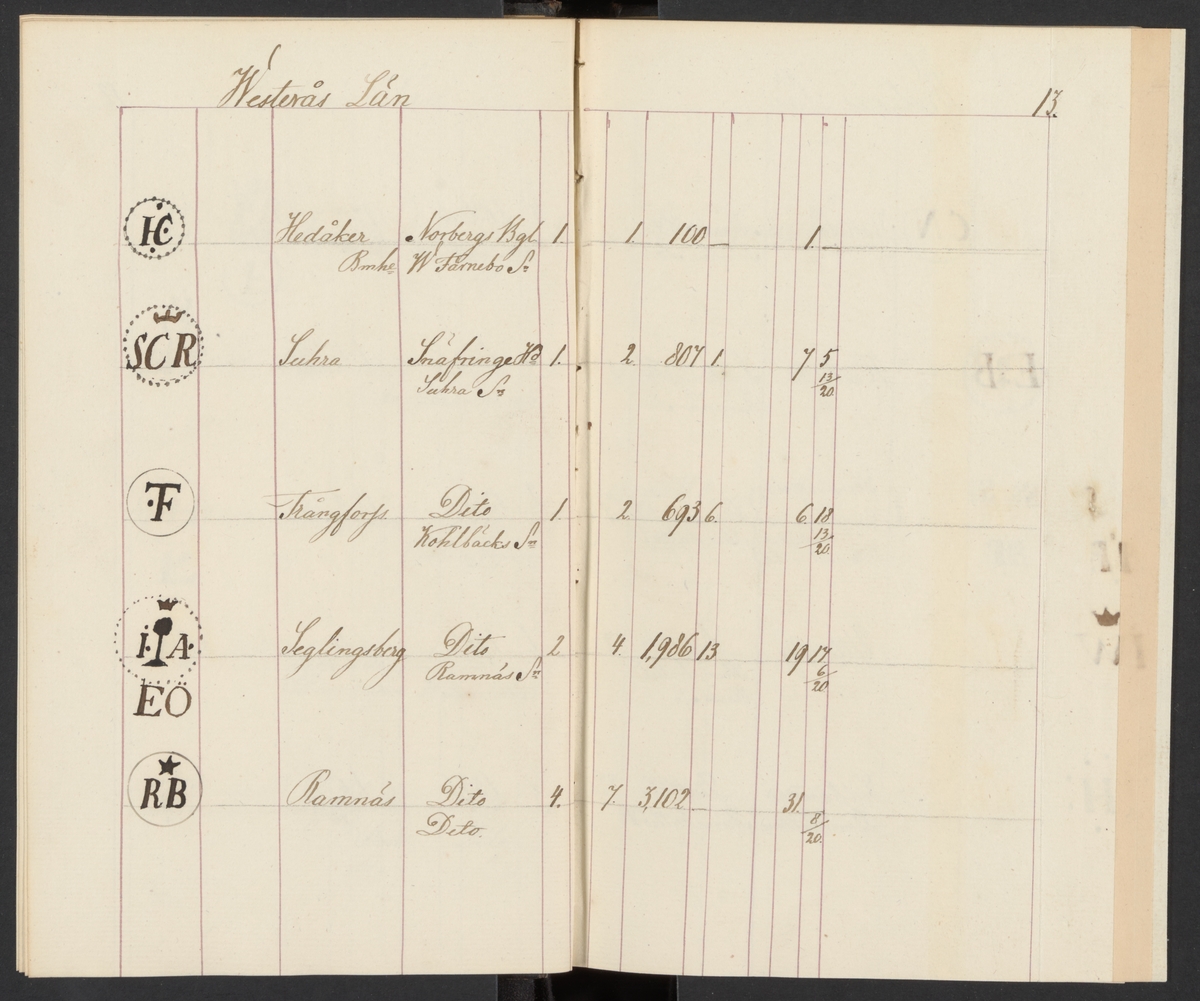 Westerås Län
13.
HC Hedåker Norbergs Bgl 1. 1. 100 _ 1. _
Bmhe W Färnebo Sn
SCR Suhra Snäfringe Hd 1. 2. 807 1. 7 5
Suhra Sn 13/20
·T· Trångforss. Dito 1. 2. 693 6. 6. 18
Kohlbäcks Sn 13/20.
I A Seglingsberg Dito 2 4. 1,986 13 19 17
Ramnäs Sn 6/20
EÖ
RB Ramnäs Dito 4. 7. 3,102 _ 31.
Dito. 8/20.